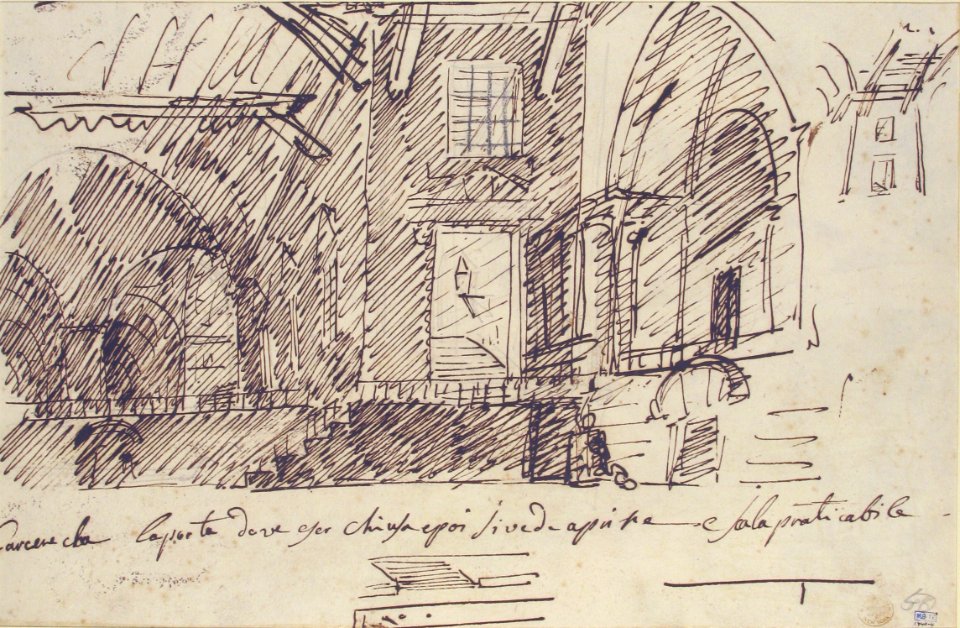 Carcere che la porta deve eser chiusa e poi si vede aprire e scala praticabile